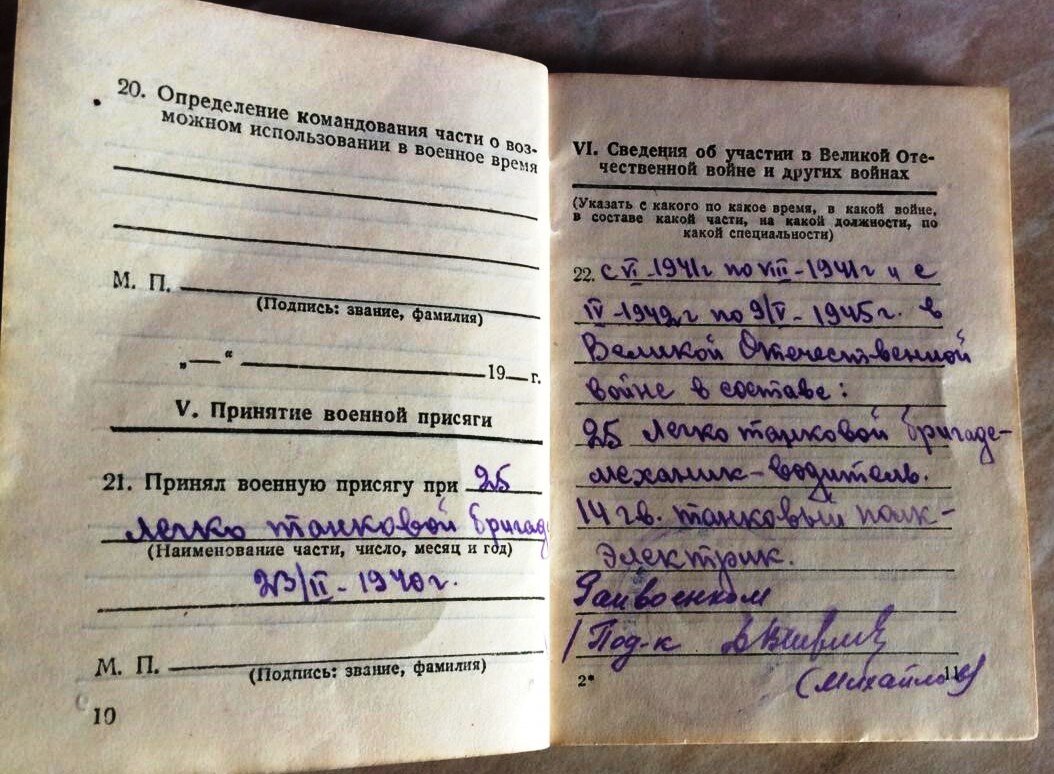 20. Определение командования части о воз-
можном использовании в военное время
М. П.
(Подпись: звание, фамилия)
„—“ 19 г.
V. Принятие военной присяги
21. Принял военную присягу при 25
легко танковой бригаде
(Наименование части, число, месяц и год)
23/II - 1940 г.
М. П.
(Подпись: звание, фамилия)
10
VI. Сведения об участии в Великой Оте-
чественной войне и других войнах
(Указать с какого по какое время, в какой войне,
в составе какой части, на какой должности, по
какой специальности)
22. С VI - 1941 г по VIII - 1941 г и с
IV - 1942 г по 9/V - 1945 г. в
Великой Отечественной
войне в составе:
25 легко танковой бригаде -
механик - водитель.
14 гв. танковый полк -
электрик.
Райвоенком
Под-к
(Михайлов)
2* 11